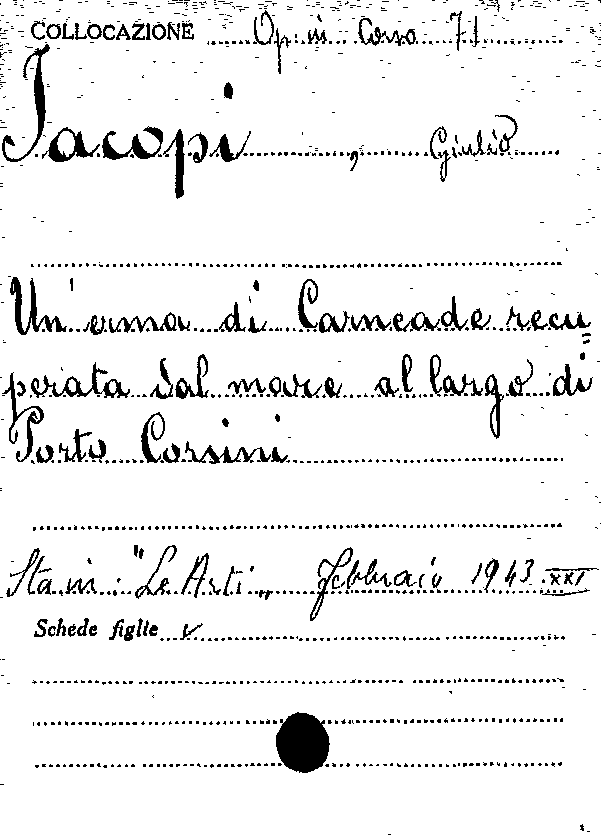 COLLOCAZIONE Op. in Corso 71
Jacopi, Giulio
Un'erma di Carneade recu=
perata dal mare al largo di
Porto Corsini
Sta in: "Le Arti„ Febbraio 1943 XXI
Schede figlie v